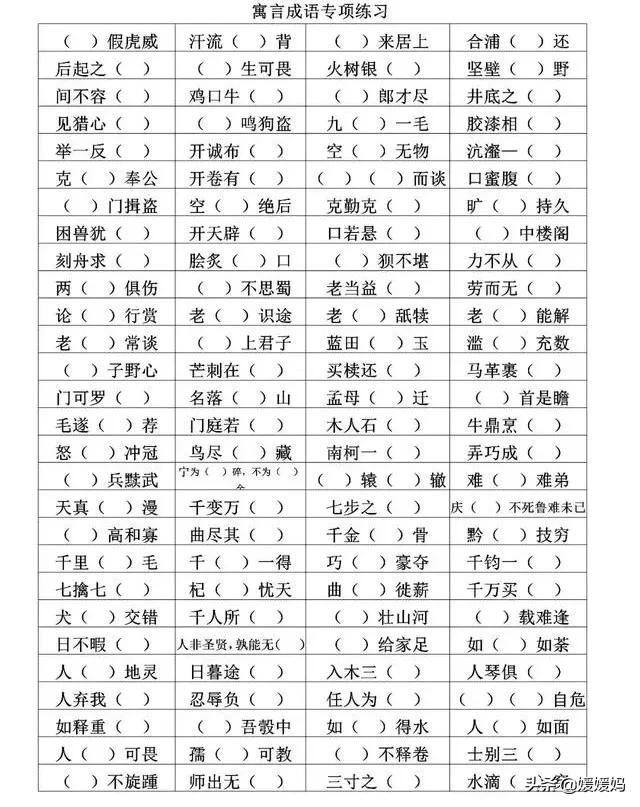 寓言成语专项练习
（ ）假虎威 汗流（ ）背 （ ）来居上 合浦（ ）还
后起之（ ） （ ）生可畏 火树银（ ） 坚壁（ ）野
间不容（ ） 鸡口牛（ ） （ ）郎才尽 井底之（ ）
见猎心（ ） （ ）鸣狗盗 九（ ）一毛 胶漆相（ ）
举一反（ ） 开诚布（ ） 空（ ）无物 沆瀣一（ ）
克（ ）奉公 开卷有（ ） （ ）（ ）而谈 口蜜腹（ ）
（ ）门揖盗 空（ ）绝后 克勤克（ ） 旷（ ）持久
困兽犹（ ） 开天辟（ ） 口若悬（ ） （ ）中楼阁
刻舟求（ ） 脍炙（ ）口 （ ）狈不堪 力不从（ ）
两（ ）俱伤 （ ）不思蜀 老当益（ ） 劳而无（ ）
论（ ）行赏 老（ ）识途 老（ ）舐犊 老（ ）能解
老（ ）常谈 （ ）上君子 蓝田（ ）玉 滥（ ）充数
（ ）子野心 芒刺在（ ） 买椟还（ ） 马革裹（ ）
门可罗（ ） 名落（ ）山 孟母（ ）迁 （ ）首是瞻
毛遂（ ）荐 门庭若（ ） 木人石（ ） 牛鼎烹（ ）
怒（ ）冲冠 鸟尽（ ）藏 南柯一（ ） 弄巧成（ ）
（ ）兵黩武 宁为（ ）碎，不为（ ） （ ）辕（ ）辙 难（ ）难弟
天真（ ）漫 千变万（ ） 七步之（ ） 庆（ ）不死鲁难未已
（ ）高和寡 曲尽其（ ） 千金（ ）骨 黔（ ）技穷
千里（ ）毛 千（ ）一得 巧（ ）豪夺 千钧一（ ）
七擒七（ ） 杞（ ）忧天 曲（ ）徙薪 千万买（ ）
犬（ ）交错 千人所（ ） （ ）壮山河 （ ）载难逢
日不暇（ ） 人非圣贤，孰能无（ ） （ ）给家足 如（ ）如荼
人（ ）地灵 日暮途（ ） 入木三（ ） 人琴俱（ ）
人弃我（ ） 忍辱负（ ） 任人为（ ） （ ）（ ）自危
如释重（ ） （ ）吾彀中 如（ ）得水 人（ ）如面
人（ ）可畏 孺（ ）可教 （ ）不释卷 士别三（ ）
（ ）不旋踵 师出无（ ） 三寸之（ ） 水滴（ ）
头条@媛媛妈